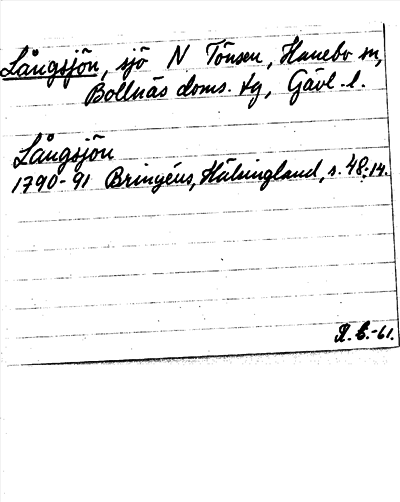 Långsjön, sjö N Tönsen, Hanebo sn,
Bollnäs doms. tg, Gävl. l.
Långsjön
1790-91 Bringéus, Hälsingland, s. 48:14.
R. E. -61.